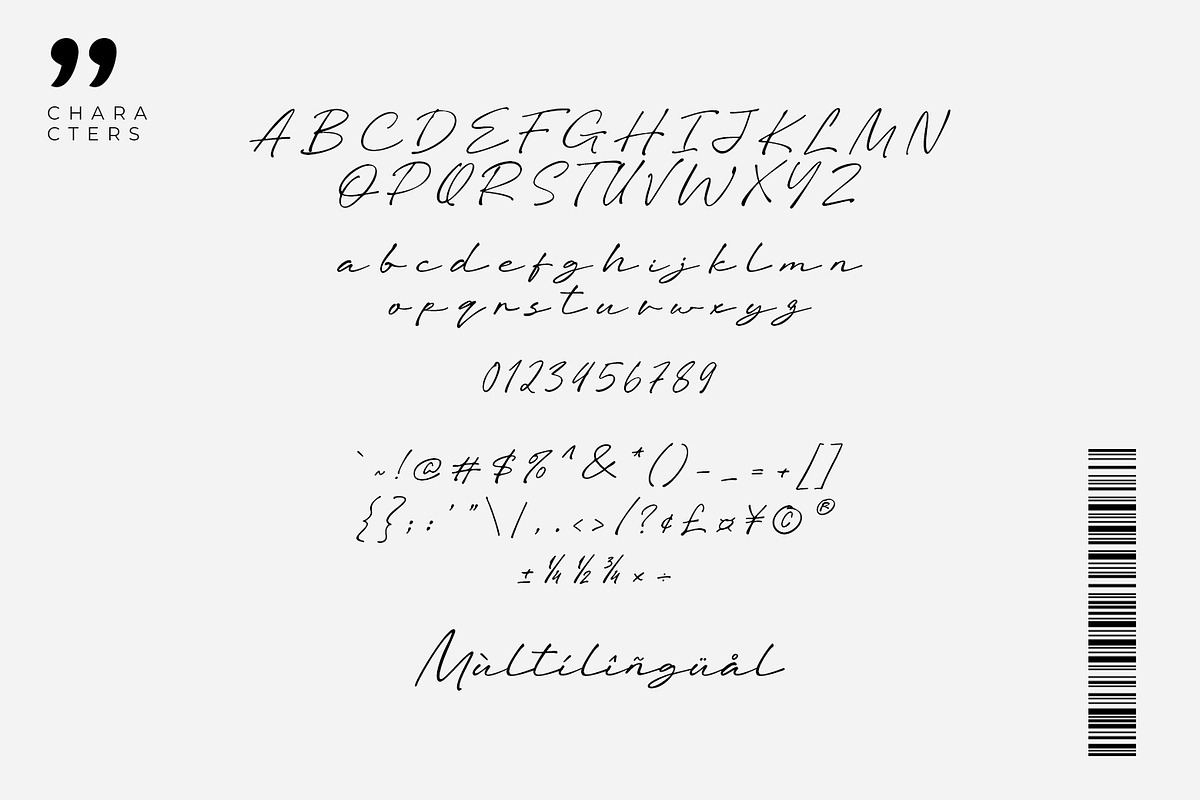 ”
CHARA
CTERS
A B C D E F G H I J K L M N
O P Q R S T U V W X Y Z
a b c d e f g h i j k l m n
o p q r s t u v w x y z
0 1 2 3 4 5 6 7 8 9
` ~ ! @ # $ % ^ & * ( ) - _ = + [ ]
{ } ; : ' " \ | , . < > / ? ¢ £ ¤ ¥ © ®
± ¼ ½ ¾ × ÷
Mùltílîñgüål